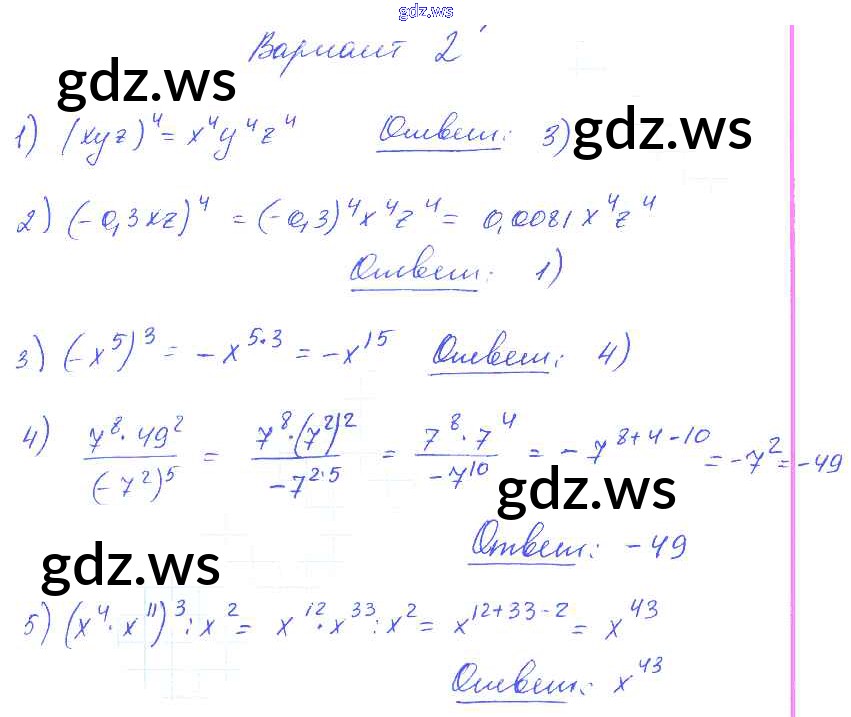 gdz.ws
Вариант 2
gdz.ws
1) (xyz)⁴ = x⁴y⁴z⁴ Ответ: 3)
gdz.ws
2) (-0,3xz)⁴ = (-0,3)⁴x⁴z⁴ = 0,0081x⁴z⁴
Ответ: 1)
3) (-x⁵)³ = -x⁵·³ = -x¹⁵ Ответ: 4)
4) 7⁸·49² / (-7²)⁵ = 7⁸·(7²)² / -7²·⁵ = 7⁸·7⁴ / -7¹⁰ = -7⁸⁺⁴⁻¹⁰ = -7² = -49
gdz.ws
Ответ: -49
gdz.ws
5) (x⁴·x¹¹)³:x² = x¹²·x³³:x² = x¹²⁺³³⁻² = x⁴³
Ответ: x⁴³